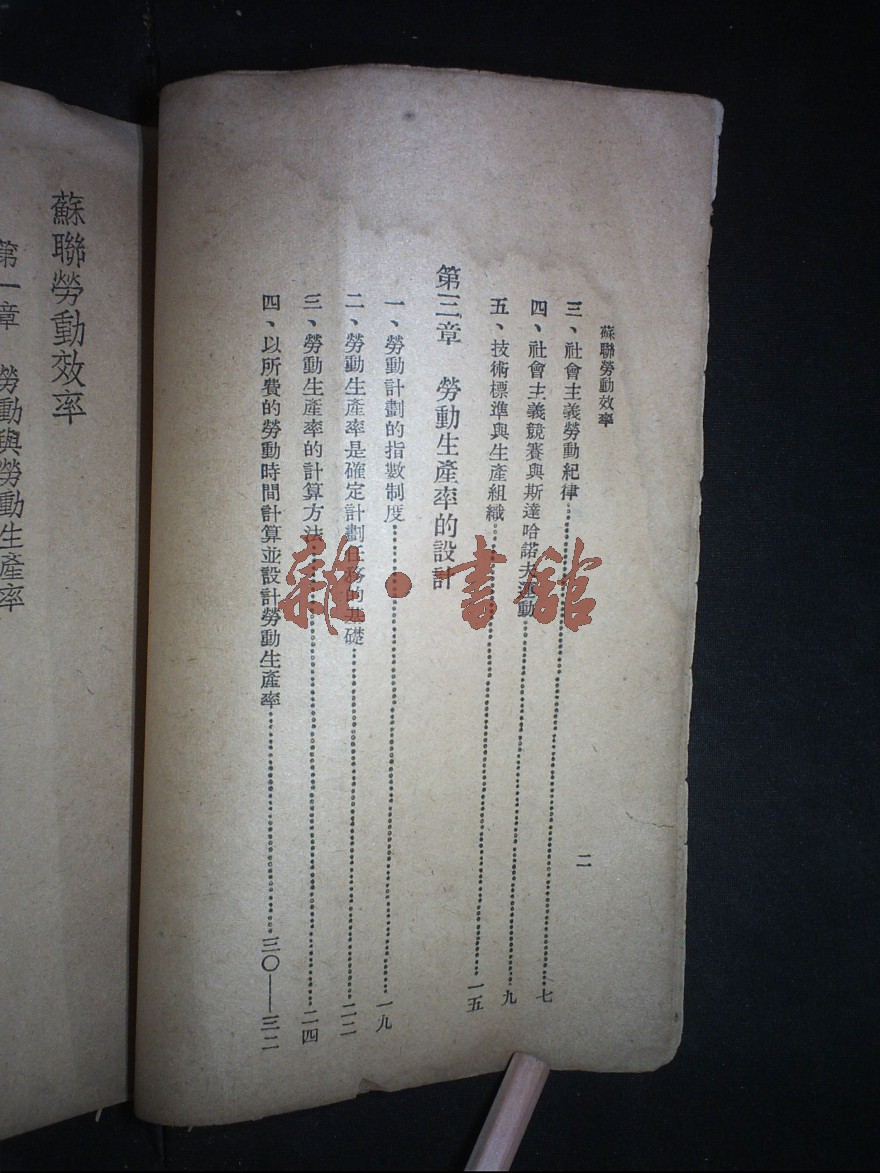 蘇聯勞動效率
二
三、社會主義勞動紀律……七
四、社會主義競賽與斯達哈諾夫運動……九
五、技術標準與生產組織……一五
第三章　勞動生產率的設計
一、勞動計劃的指數制度……一九
二、勞動生產率是確定計劃任務的基礎……二二
三、勞動生產率的計算方法……二四
四、以所費的勞動時間計算並設計勞動生產率……三〇——三二
蘇聯勞動效率
第一章　勞動與勞動生產率
雜·書館